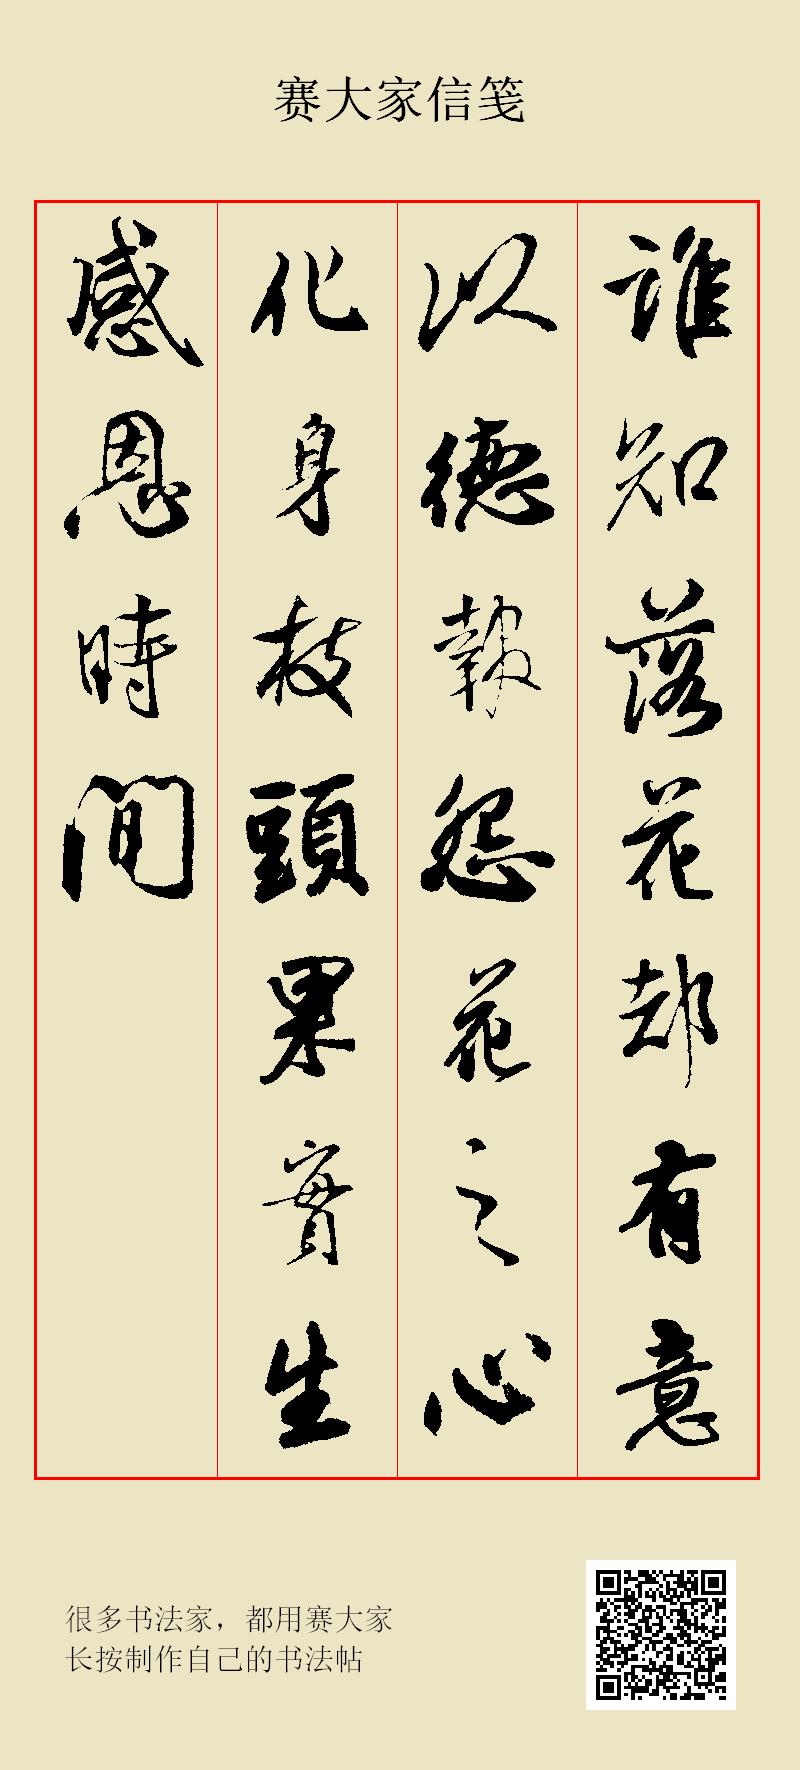 赛大家信笺
誰知落花却有意
以德報怨花之心
化身枝頭果實生
感恩時間
很多书法家，都用赛大家
长按制作自己的书法帖